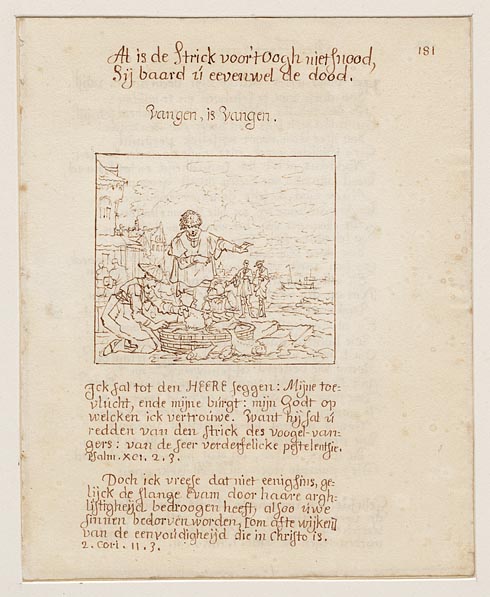 181
Al is de Strick voor't Oogh niet snood,
Sij baard ú eevenwel de dood.
Vangen, is Vangen.
Ick sal tot den HEERE seggen: Mijne toe-
vlúcht, ende mijne búrgt: mijn Godt op
welcken ick vertrouwe. Want hij sal ú
redden van den strick des voogel-van-
gers: van de seer verderfelicke pestelentsie.
Psalm. XCI. 2. 3.
Doch ick vreese dat niet eenigsins, ge-
lijck de slange Evam door haare argh-
listigheijd bedroogen heeft, alsoo úwe
sinnen bedorven worden, om afte wijken
van de eenvoúdigheijd die in Christo is.
2. Cori. 11. 3.